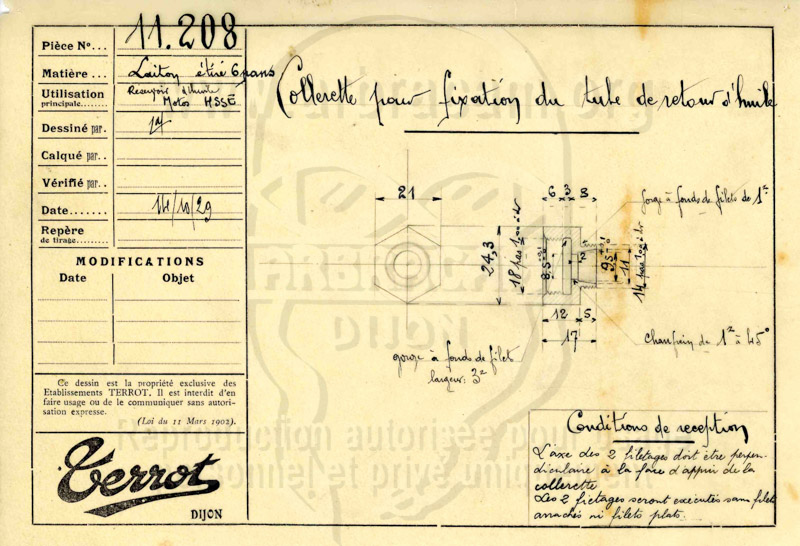 Pièce Nº... 11.208
Matière ... Laiton étiré 6 pans
Utilisation Réservoir d'huile
principale....... Motos HSSE
Dessiné par.
Calqué par..
Vérifié par..
Date....... 14/10/29
Repère
de tirage.........
MODIFICATIONS
Date Objet
Ce dessin est la propriété exclusive des
Etablissements TERROT. Il est interdit d'en
faire usage ou de le communiquer sans autori-
sation expresse.
(Loi du 11 Mars 1902).
Terrot
DIJON
Collerette pour fixation du tube de retour d'huile
21
6 3 8
gorge à fonds de filets de 1
24,3
18 pas
8.5
2
9.5
11
14 pas
12 5
17
gorge à fonds de filets
largeur: 3
Chanfrein de 1 à 45°
Conditions de réception
L'axe des 2 filetages doit être perpen-
diculaire à la face d'appui de la
collerette
Les 2 filetages seront exécutés sans filets
arrachés ni filets plats.
DIJON
Reproduction autorisée pour
personnel et privé uniquement